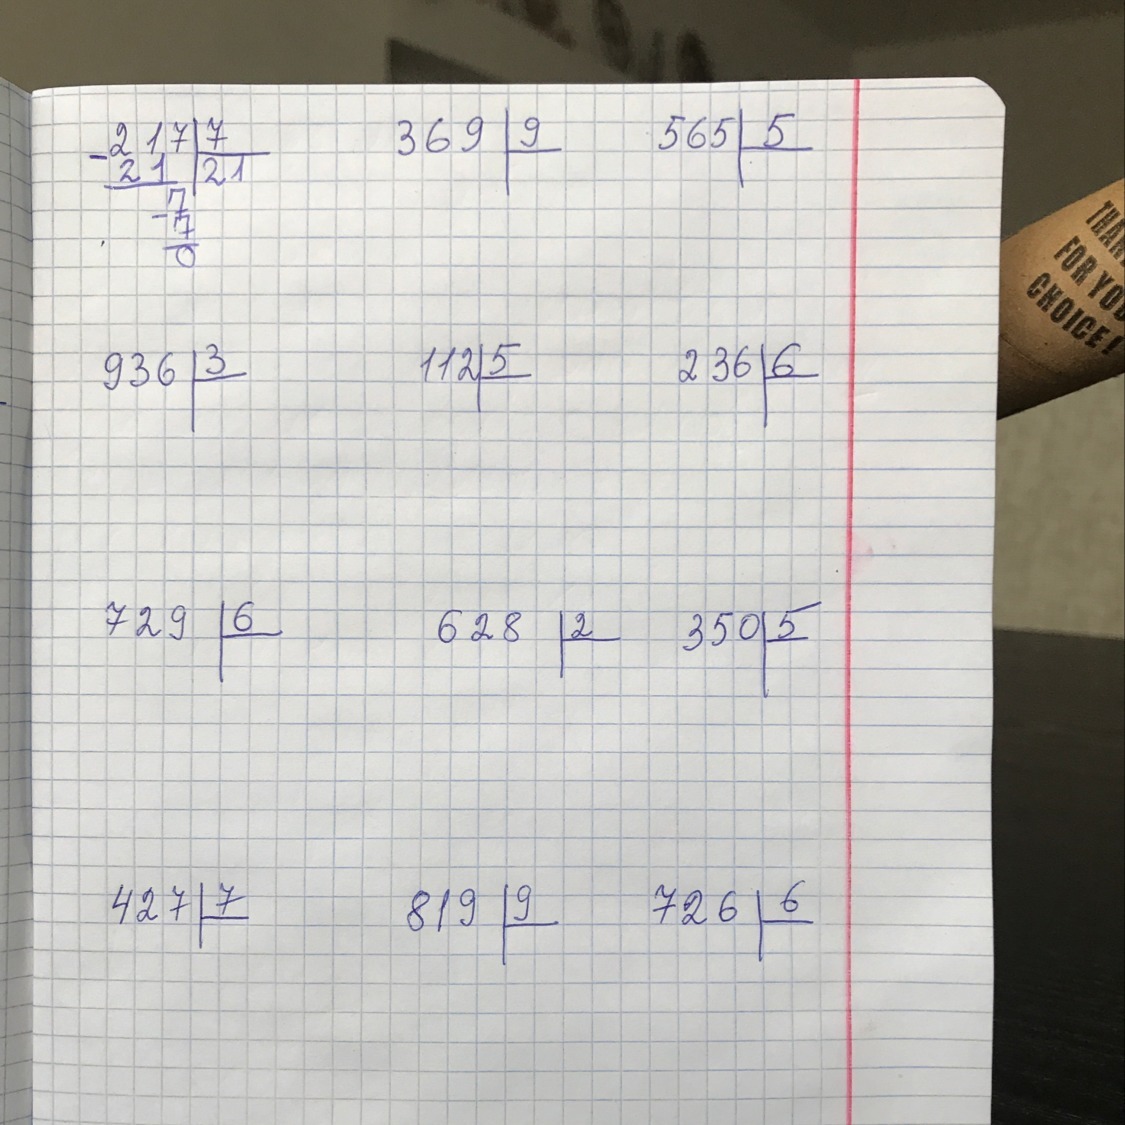 217 7 369 9 565 5
- 21 21
- 7
7
0
936 3 112 5 236 6
729 6 628 2 350 5
427 7 819 9 726 6
THAN
FOR YOU
CHOICE!